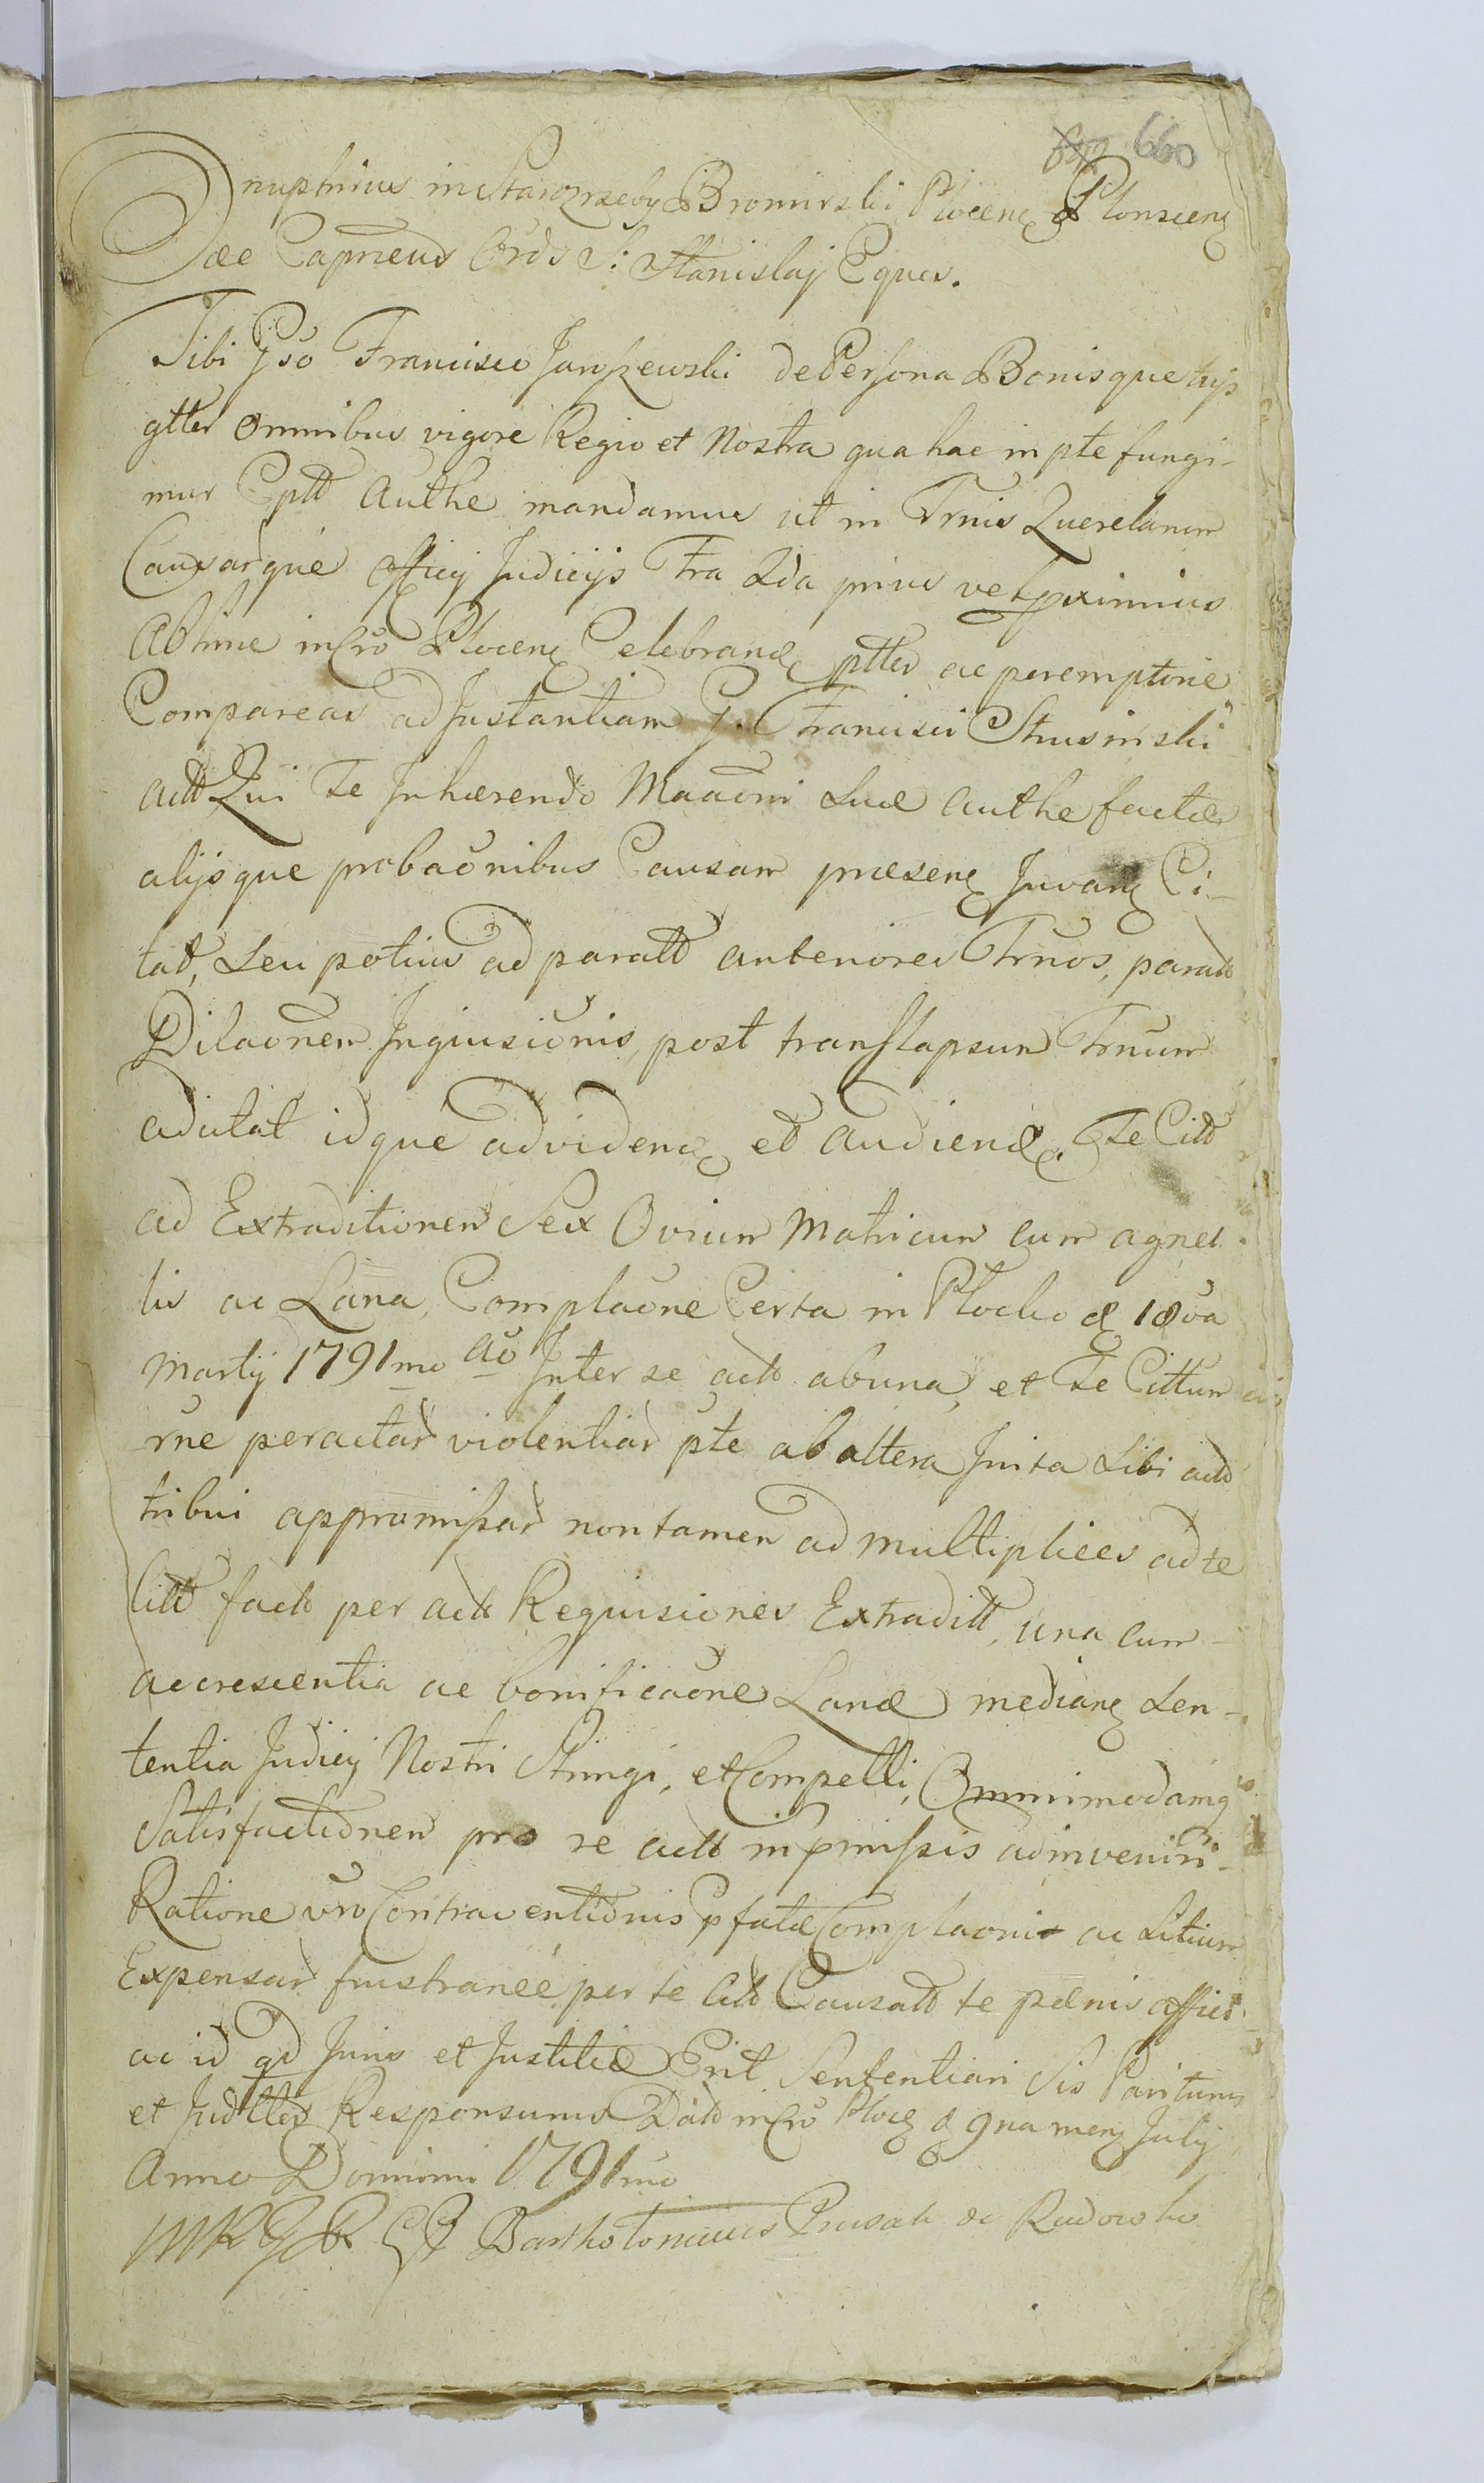 660
Onuphrius in Starozreby Bromirski Plocens & Plonscens
Sae Capneus Ords S: Stanislaj Eques.
Tibi Gso Francisco Jaroszewski de Persona Bonisque tuis
gtter omnibus vigore Regio et Nostra qua hac in pte fungi-
mur Cptt Authe mandamus ut in Trnis Querelarum
Causarque Officij Judicijs Fra 2da prius vel pximius
Abhinc in Cro Plocens Celebrand ptter ac peremptorie
Compareas ad Instantiam G. Francisci Strusinski
actt Qui Te Inhærendo Maaoni Suæ authe factæ
alijsque probaonibus Causam præsens Juvans Ci-
tat, Seu potius ad paratt anteriores Trnos, paratt
Dilaonem Ingiusionis, post translapsum Trnum
adcitat idque ad vidend et audiend. Te Citt
ad Extraditionem Sex Ovium Matricum cum agnel
lis ac Lana, Complaone Certa in Plocko d 18va
Martij 1791mo ao Inter se actt ab una, et Te Cittum
rne peractar violentiar pte ab altera Inita Sibi actt
tribui appromissar non tamen ad multiplices ad te
Citt factt per actt Requisiones Extraditt, una cum
accrescentia ac bonificaone Lanæ medians Sen-
tentia Judicij Nostri Stringi, et Compelli, Omnimodamq
Satisfactionem pro re actt in pmissis adinveniri
Ratione vro Contraventionis pfatæ Complaonis ac Litium
Expensar frustranee per te Citt Causatt te pœnis affici
ac id qd Juris et Justitiæ Erit Sententiari Sis Pariturus
et Judtter Responsurus Datt in Cro Ploc d 9na mens Julij
Anno Domini 1791mo
Bartholomeus Prusak de Radowko